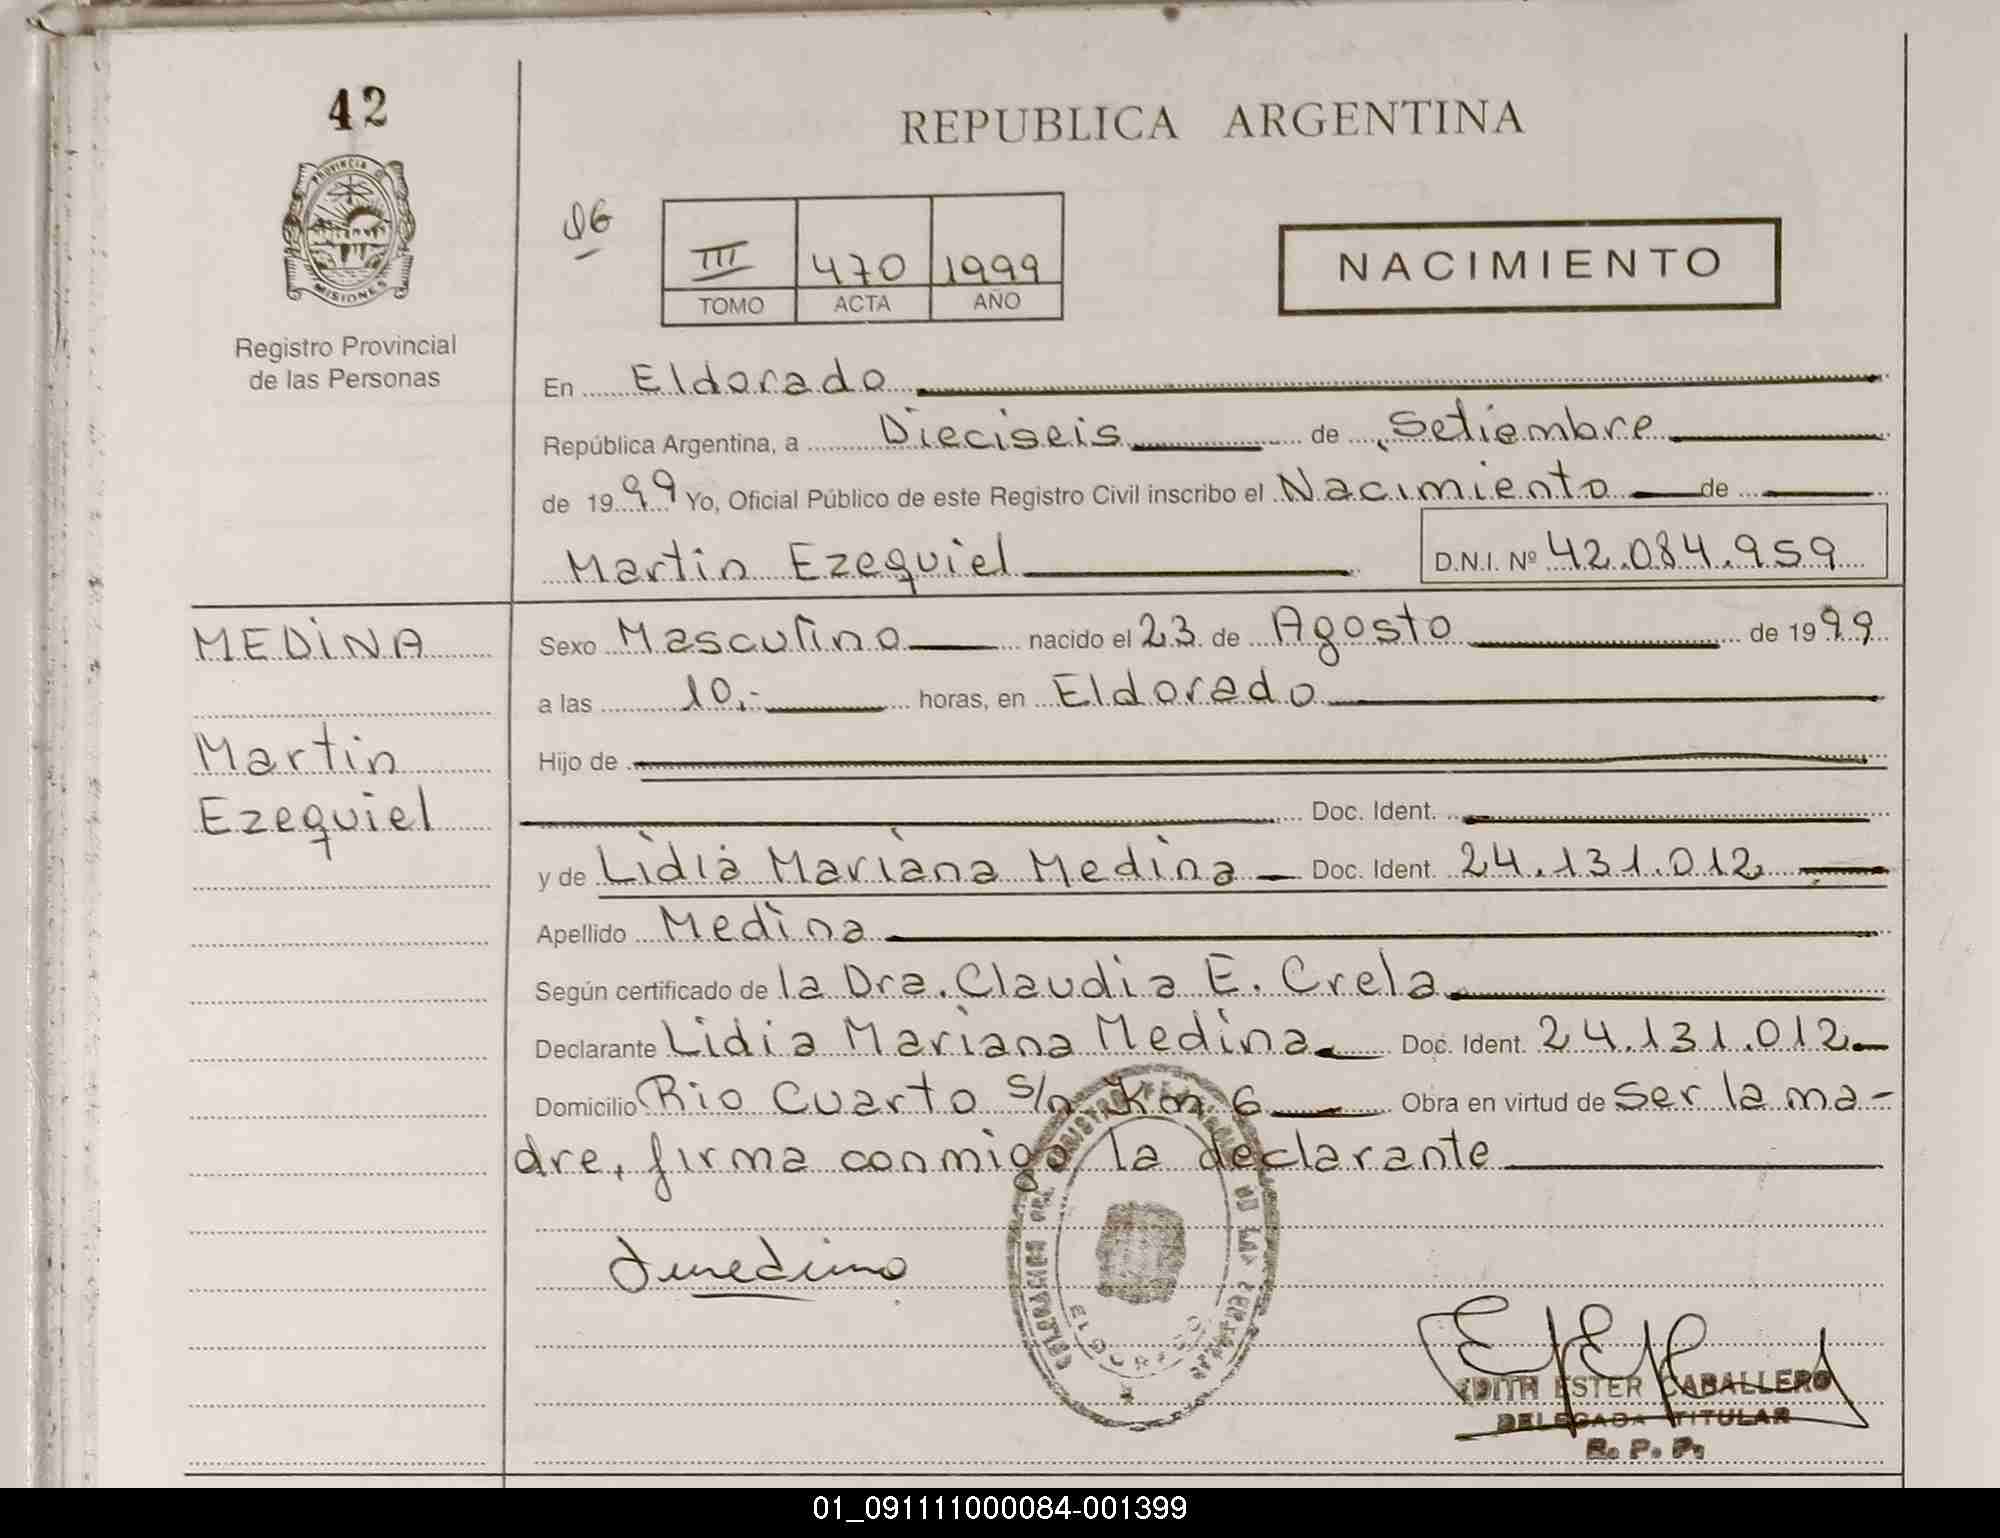 42
PROVINCIA DE
MISIONES
Registro Provincial
de las Personas
REPUBLICA ARGENTINA
III 470 1999
TOMO ACTA AÑO
NACIMIENTO
En Eldorado
República Argentina, a Dieciseis de Setiembre
de 1999 Yo, Oficial Público de este Registro Civil inscribo el Nacimiento de
Martin Ezequiel D.N.I. Nº 42.084.959
MEDINA
Martin
Ezequiel
Sexo Masculino nacido el 23 de Agosto de 1999
a las 10,- horas, en Eldorado
Hijo de
Doc. Ident.
y de Lidia Mariana Medina Doc. Ident. 24.131.012
Apellido Medina
Según certificado de la Dra. Claudia E. Crela
Declarante Lidia Mariana Medina Doc. Ident. 24.131.012
Domicilio Rio Cuarto s/n Km 6 Obra en virtud de ser la ma-
dre, firma conmigo la declarante
ELDORADO
EDITH ESTER CABALLERO
DELEGADA TITULAR
R. P. P.
01_091111000084-001399